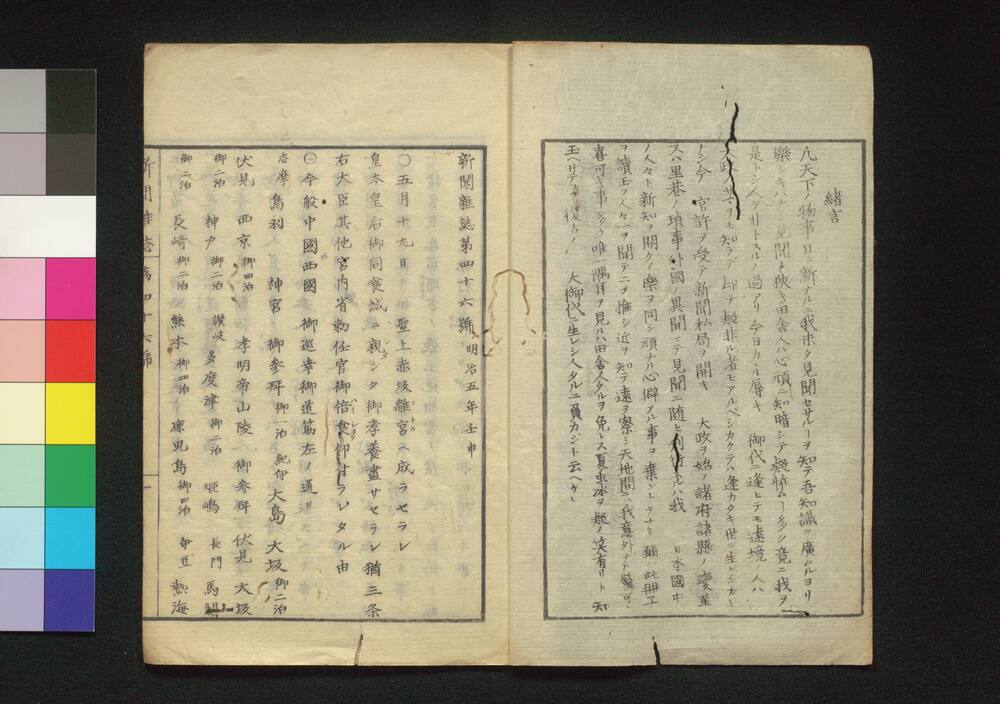 緒言
凡天下ノ物事日ニ新ナルニ我未タ見聞セサルヿヲ知テ吾知識ヲ廣ムルヨリ
樂シキハナ 見聞ノ狹キ田舎人ハ心頑ニ知暗シテ疑怪ムヿ多シ竟ニ我ヲ
是トシ人ヲ非トスルノ過アリ今日カヽル辱キ 御代ニ逢ヒテモ遠境ノ人ハ
知ラデ却テ疑非ル者モアルベシカクテハ逢カタキ世ニ生レシカヒ
ナシ今 官許ヲ受テ新聞私局ヲ開キ 大政ヲ始メ諸府諸縣ノ變革
又ハ里巷ノ瑣事外國ノ異聞マテ見聞ニ随ヒ 我 日本國中
ノ人々ト新知ヲ開クノ樂ヲ同シ頑ナル心僻メル事ヲ棄シメラナリ 願ハ此冊子
ヲ讀玉フ人々一ヲ聞テ二ヲ推シ近ヲ知テ遠ヲ察シ天地間ニハ我意外ナル
喜可キ事多ク唯一隅耳ヲ見ハ田舎人タルヲ免レス夏虫氷ヲ疑ノ笑有リト知
玉ヘサテ 大御代ニ生レシ人タルニ負カジト云ヘケレ
新聞雜誌第四十六號 明治五年壬申
○五月十九日 聖上赤坂離宮ヘ成ラセラレ
皇太皇后御同食誠ニ親シク御孝養盡サセラレ猶三条
右大臣其他宮内省勅任官御倍食仰付ラレタル由
㊀今般中國西國 御巡幸御道筋左ノ通リ
志摩 鳥羽 神宮 御参拜 御一泊 紀伊 大島 大坂 御二泊
伏見 西京 御四泊 孝明帝山陵ヘ御参拜伏見 大坂
御二泊 神戸 御二泊 讃岐 多度津 御二泊 姫嶋 長門 馬關
御二泊 長﨑 御二泊 熊本 御四泊 鹿児島 御四泊 伊豆 熱海
新聞雜誌 第四十六號 一